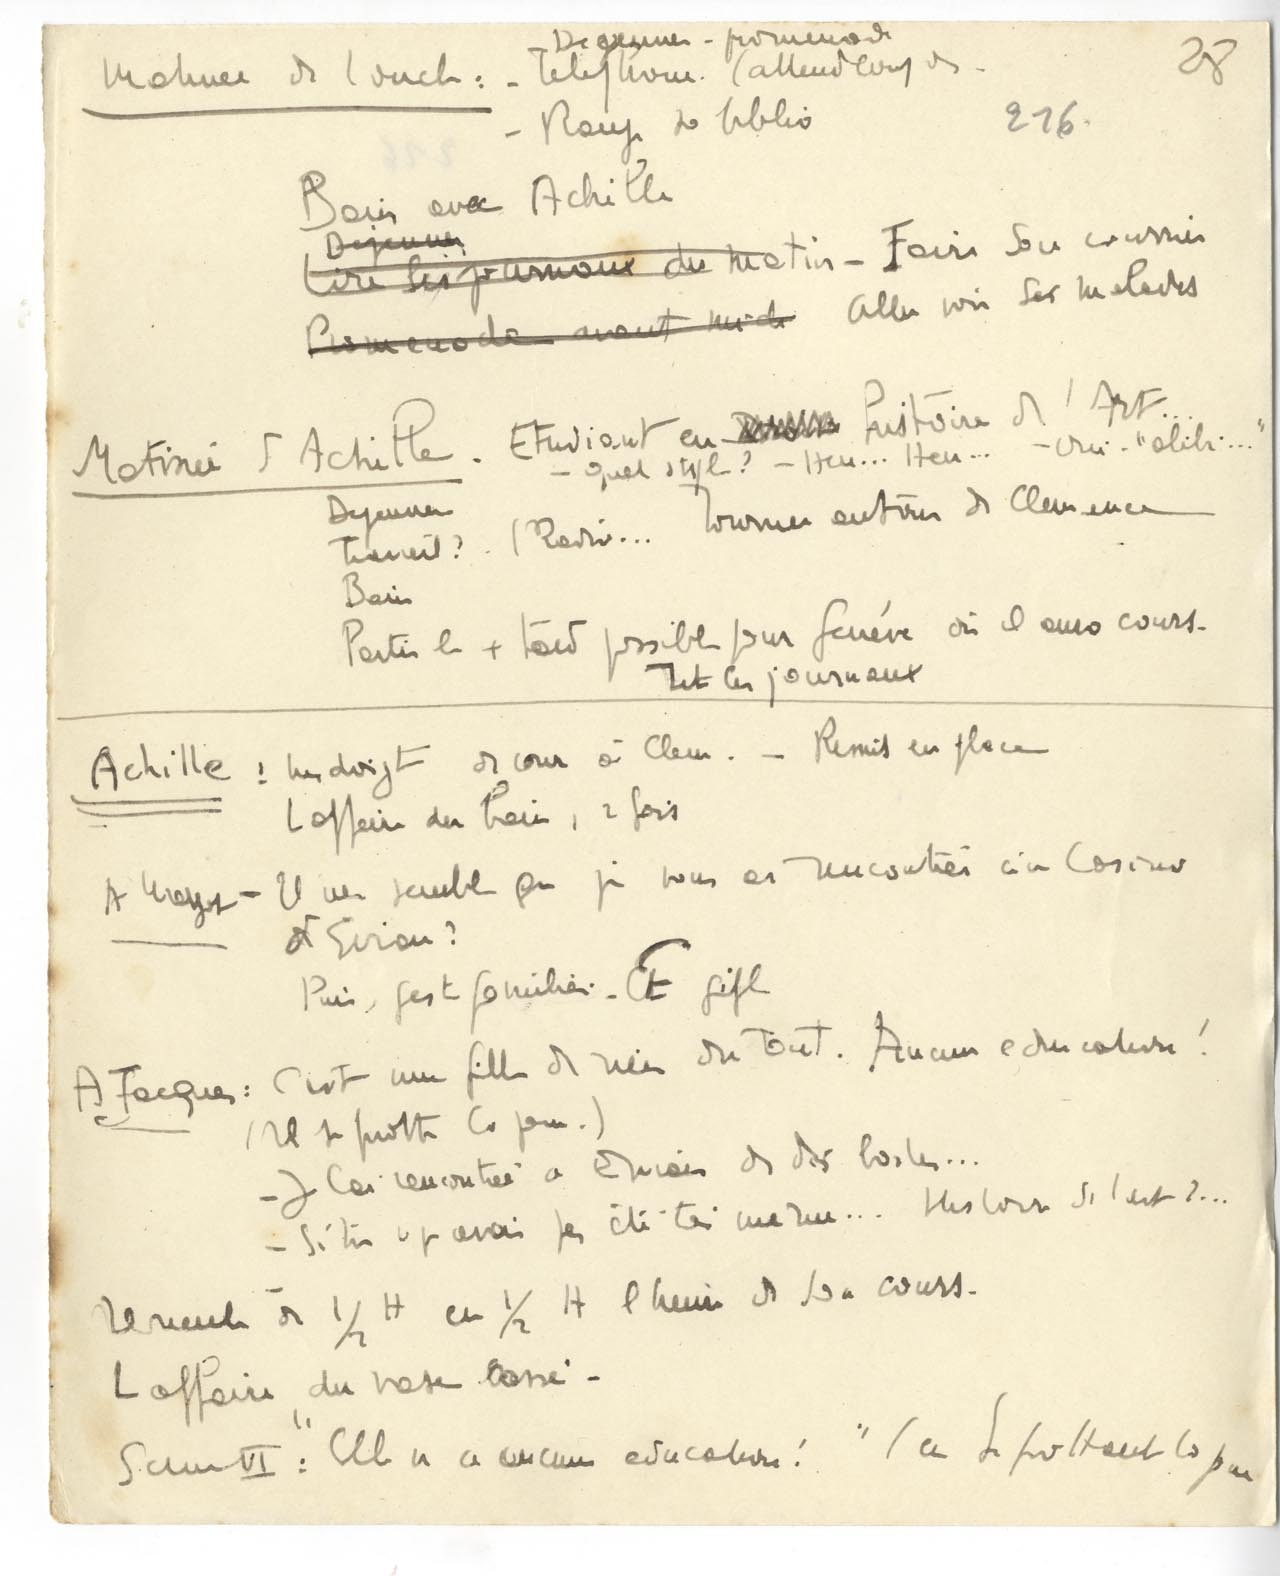 - Dejeuner - promenade
28
Matinée de Couch : - Telephone. (attend coup de -
- Range sa biblio
216.
Bain avec Achille
Dejeuner
Lire les journaux du matin - Faire son courrier
Promenade avant midi Aller voir ses malades
Matinée d'Achille. Etudiant en histoire de l'Art...
- Quel style ? - Heu... Heu... - Oui. "alibi..."
Dejeuner
Travail ? (Radio... Tourner autour de Clemence
Bain
Partir le + tard possible pour Genéve où il aura cours.
Lit les journaux
Achille : Un doigt de cour à Clem. - Remis en place
L'affaire du bain, 2 fois
A - Il me semble que je vous ai rencontrée au Casino
d'Evian ?
Puis, geste familier. Et gifle
A Jacques : C'est une fille de rien du tout. Aucune education !
(Il se frotte la joue.)
- Je l'ai rencontrée a Evian de
- Si tu n'y avais pas été toi même... Histoire de l'art ?...
Recule de 1/2 H en 1/2 H l'heure de son cours.
L'affaire du vase cassé -
Scene VI : "Elle n'a aucune education ! " (en se frottant la joue